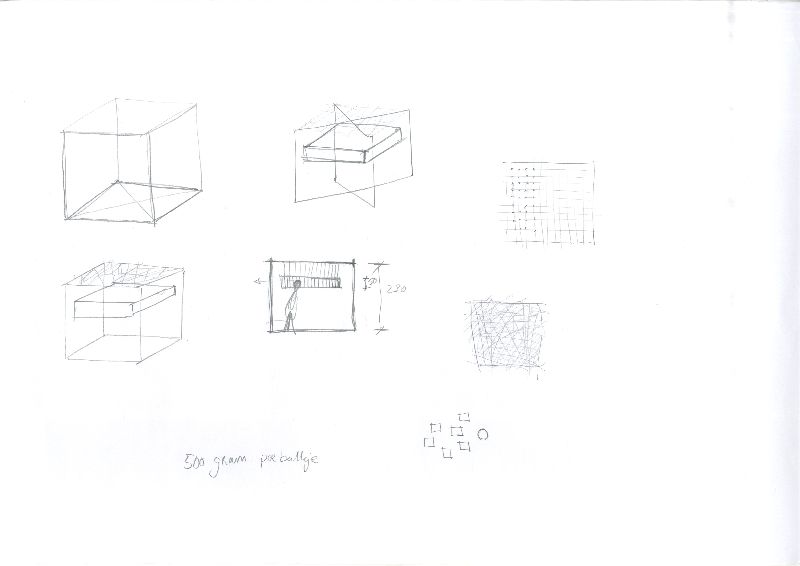 30
230
500 gram per balletje